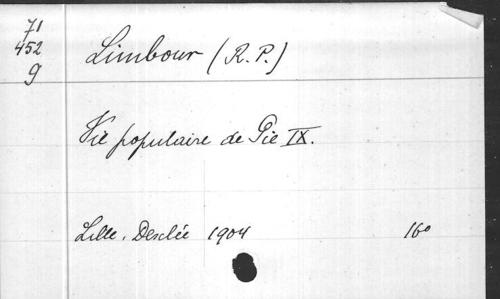 71
452
9
Limbour (R. P.)
Vie populaire de Pie IX.
Lille, Desclée 1904 16°